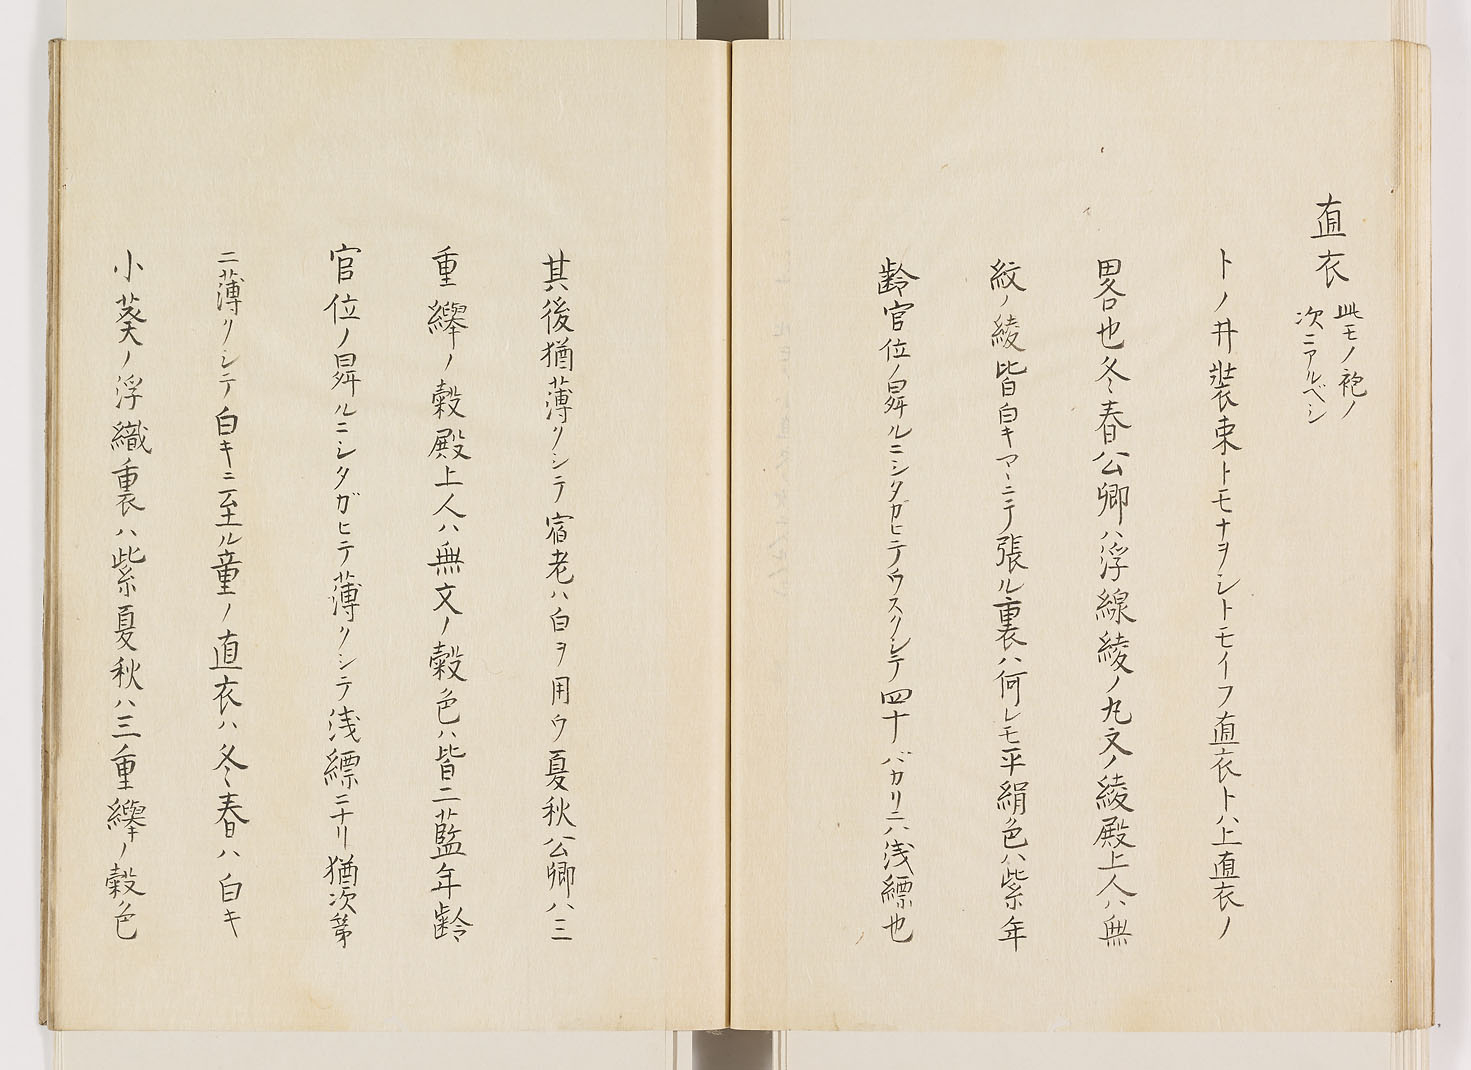 直衣
此モノ袍ノ
次ニアルベシ
トノ井装束トモナヲシトモイフ直衣トハ上直衣ノ
畧也冬春公卿ハ浮線綾ノ丸文ノ綾殿上人ハ無
紋ノ綾皆白キマヽニテ張ル裏ハ何レモ平絹色ハ紫年
齢官位ノ昇ルニシタガヒテウスクシテ四十バカリニハ浅縹也
其後猶薄クシテ宿老ハ白ヲ用ウ夏秋公卿ハ三
重襷ノ縠殿上人ハ無文ノ縠色ハ皆二藍年齢
官位ノ昇ルニシタガヒテ薄クシテ浅縹ニナリ猶次第
ニ薄クシテ白キニ至ル童ノ直衣ハ冬春ハ白キ
小葵ノ浮織裏ハ紫夏秋ハ三重襷ノ縠色